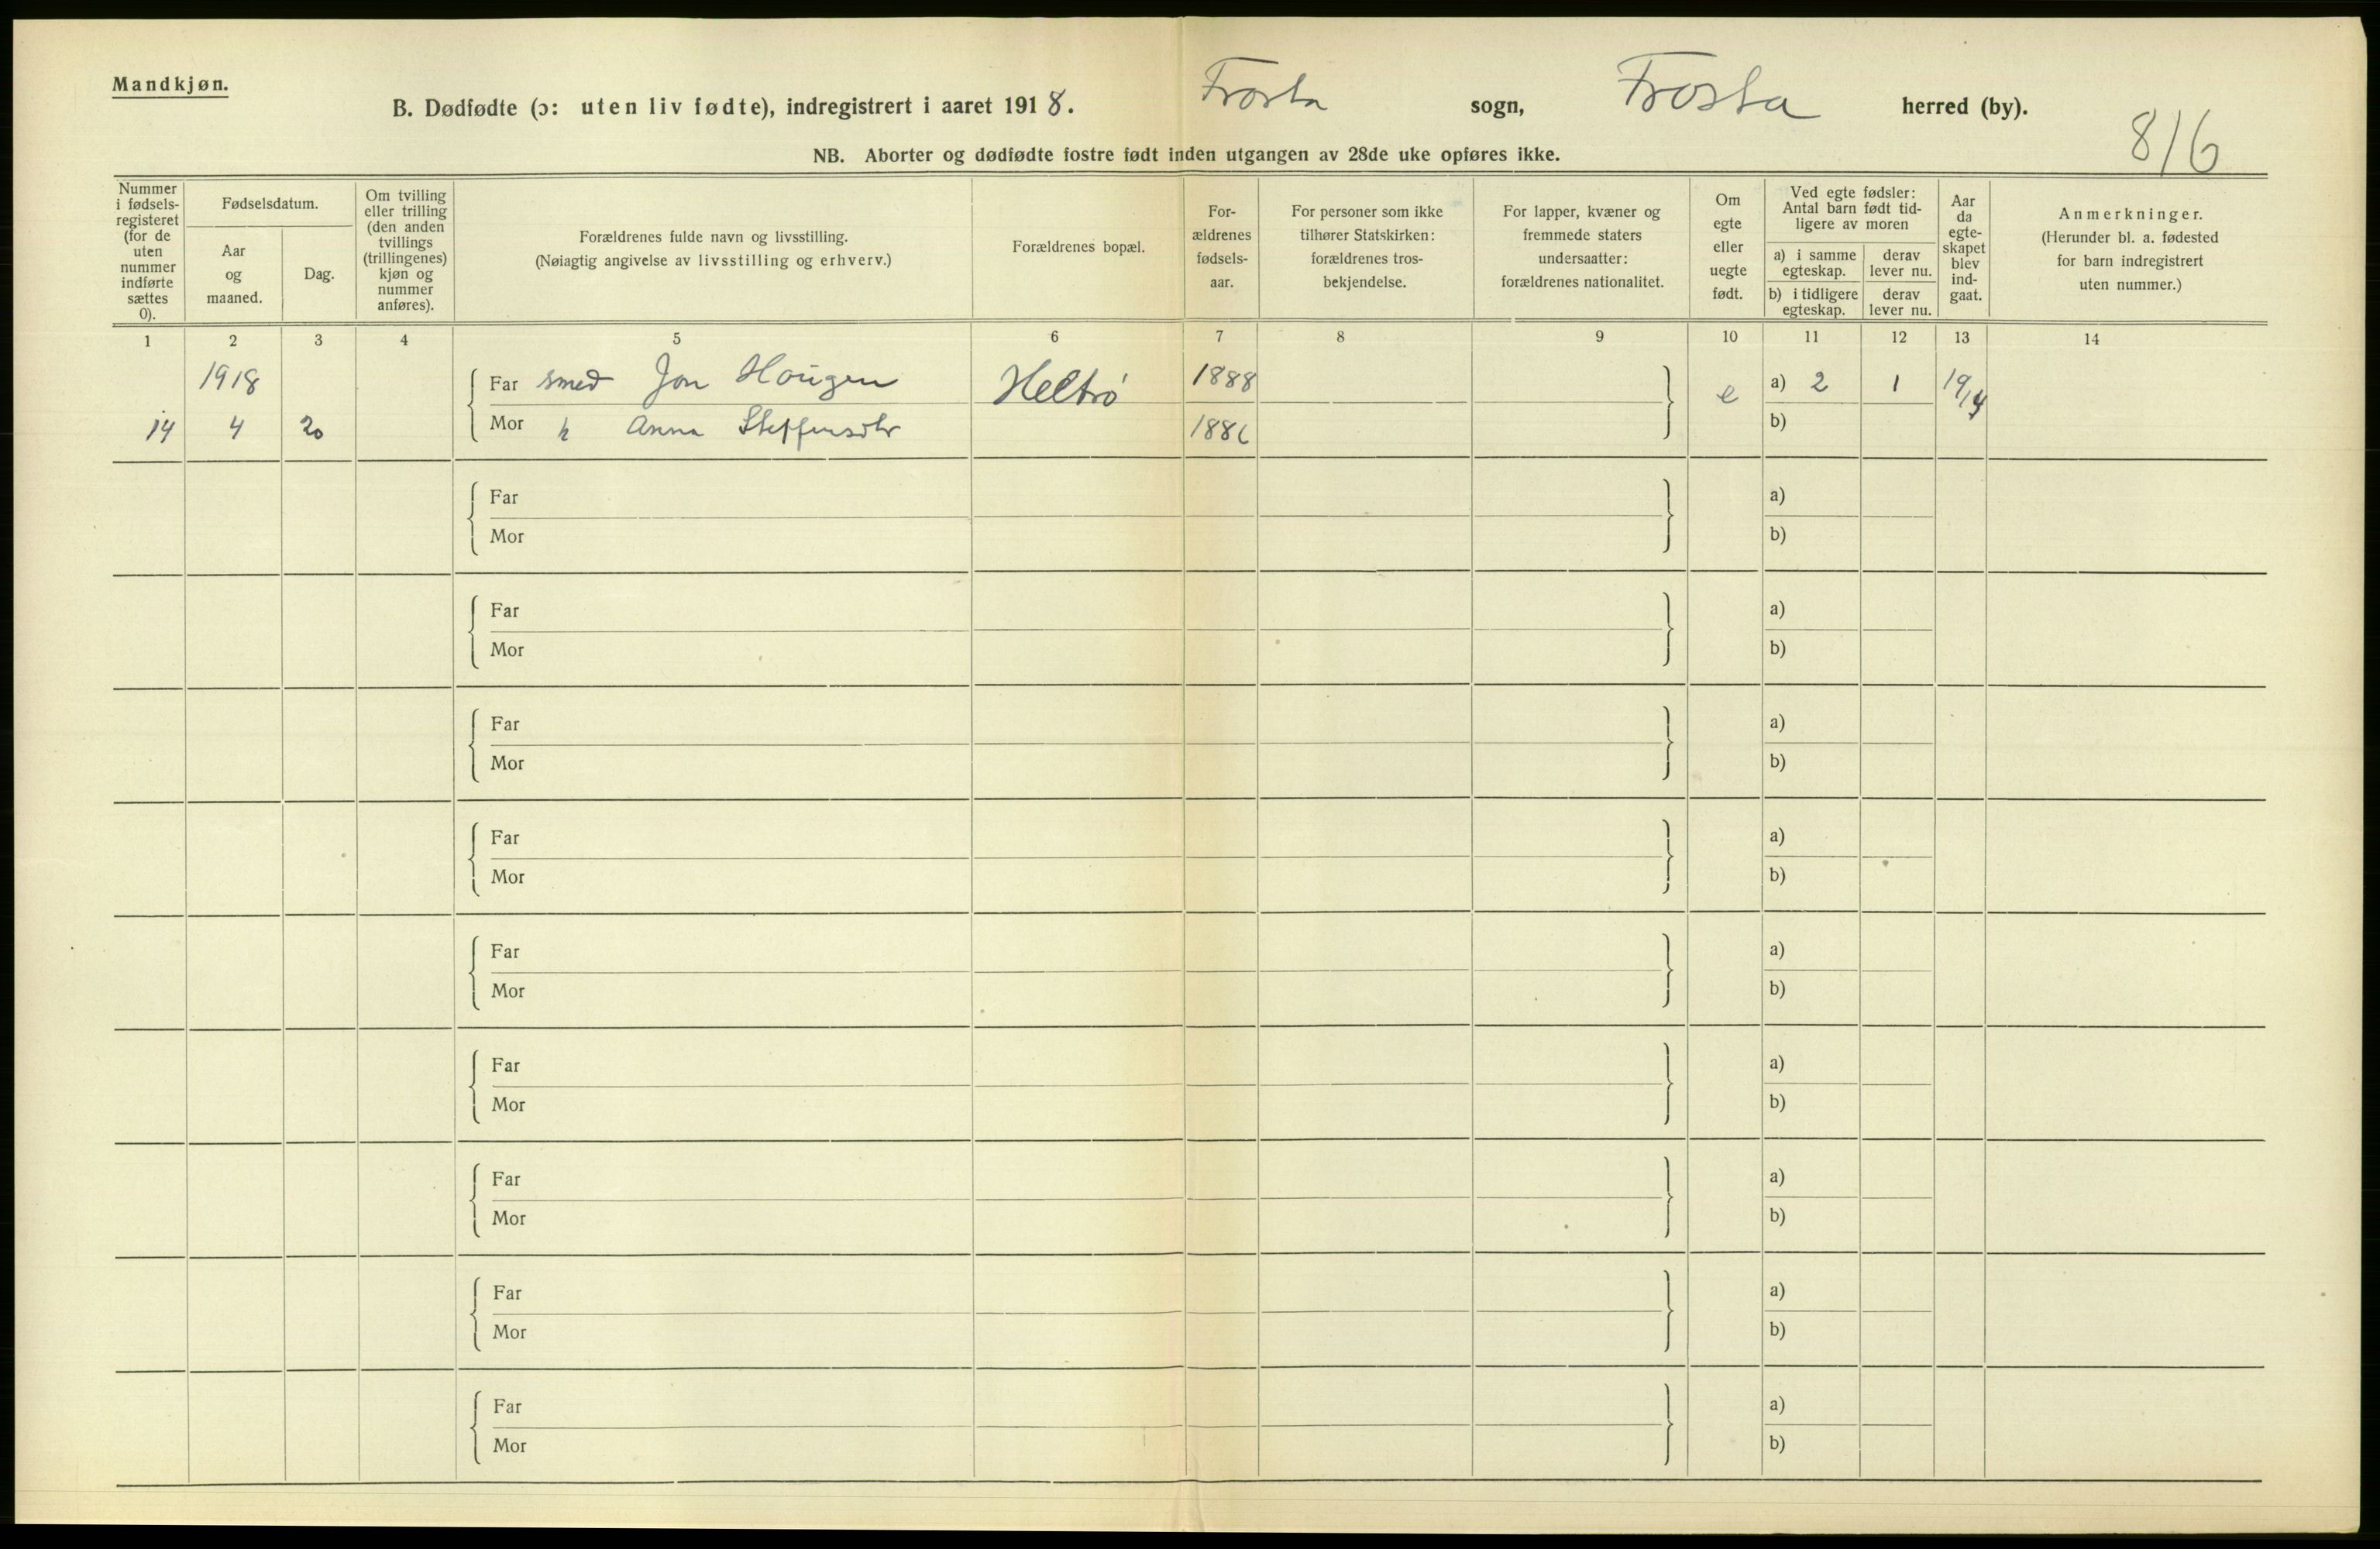 Mandkjøn.
B. Dødfødte (ɔ: uten liv fødte), indregistrert i aaret 1918. Frosta sogn, Frosta herred (by).
816
NB. Aborter og dødfødte fostre født inden utgangen av 28de uke opføres ikke.
Nummer i fødsels-registeret (for de uten nummer indførte sættes 0).
Fødselsdatum.
Aar og maaned.
Dag.
Om tvilling eller trilling (den anden tvillings (trillingenes) kjøn og nummer anføres).
Forældrenes fulde navn og livsstilling.
(Nøiagtig angivelse av livsstilling og erhverv.)
Forældrenes bopæl.
For-ældrenes fødsels-aar.
For personer som ikke tilhører Statskirken: forældrenes tros-bekjendelse.
For lapper, kvæner og fremmede staters undersaatter: forældrenes nationalitet.
Om egte eller uegte født.
Ved egte fødsler: Antal barn født tid-ligere av moren
a) i samme egteskap.
derav lever nu.
b) i tidligere egteskap.
derav lever nu.
Aar da egte-skapet blev ind-gaat.
Anmerkninger.
(Herunder bl. a. fødested for barn indregistrert uten nummer.)
1 2 3 4 5 6 7 8 9 10 11 12 13 14
1918 Far smed Jon Hougen Heltrö 1888 e a) 2 1 19/14
14 4 20 Mor h Anna Steffensdtr 1886 b)
Far a)
Mor b)
Far a)
Mor b)
Far a)
Mor b)
Far a)
Mor b)
Far a)
Mor b)
Far a)
Mor b)
Far a)
Mor b)
Far a)
Mor b)
Far a)
Mor b)